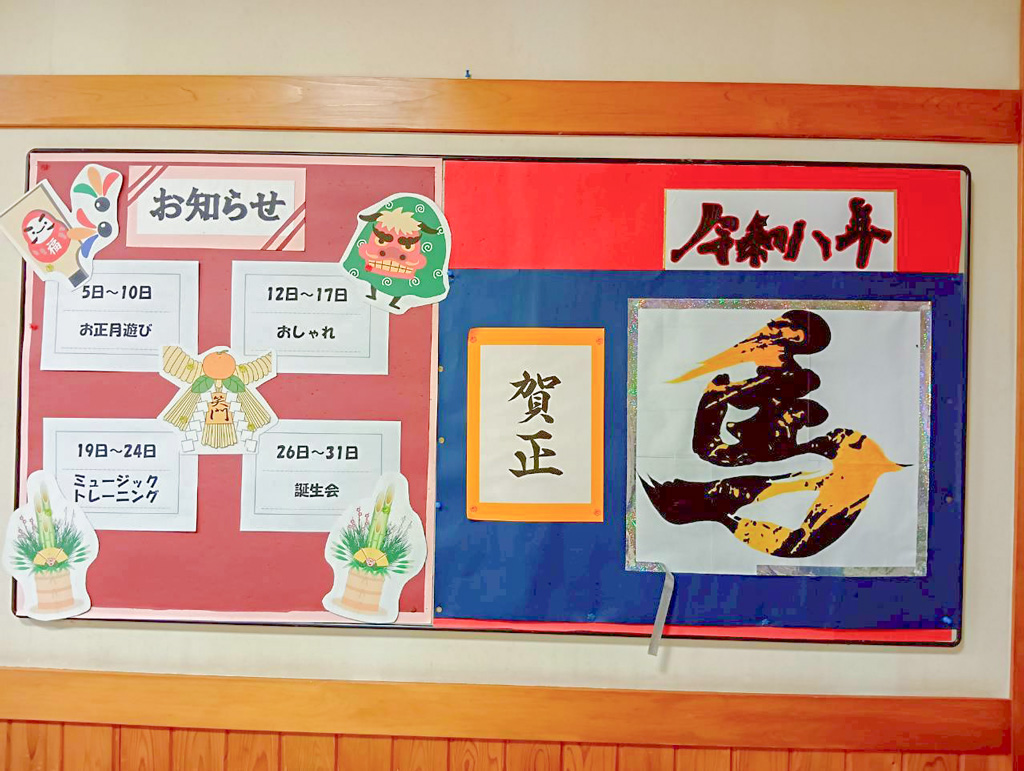 お知らせ
福
5日～10日
お正月遊び
12日～17日
おしゃれ
笑門
19日～24日
ミュージック
トレーニング
26日～31日
誕生会
令和八年
賀正
馬